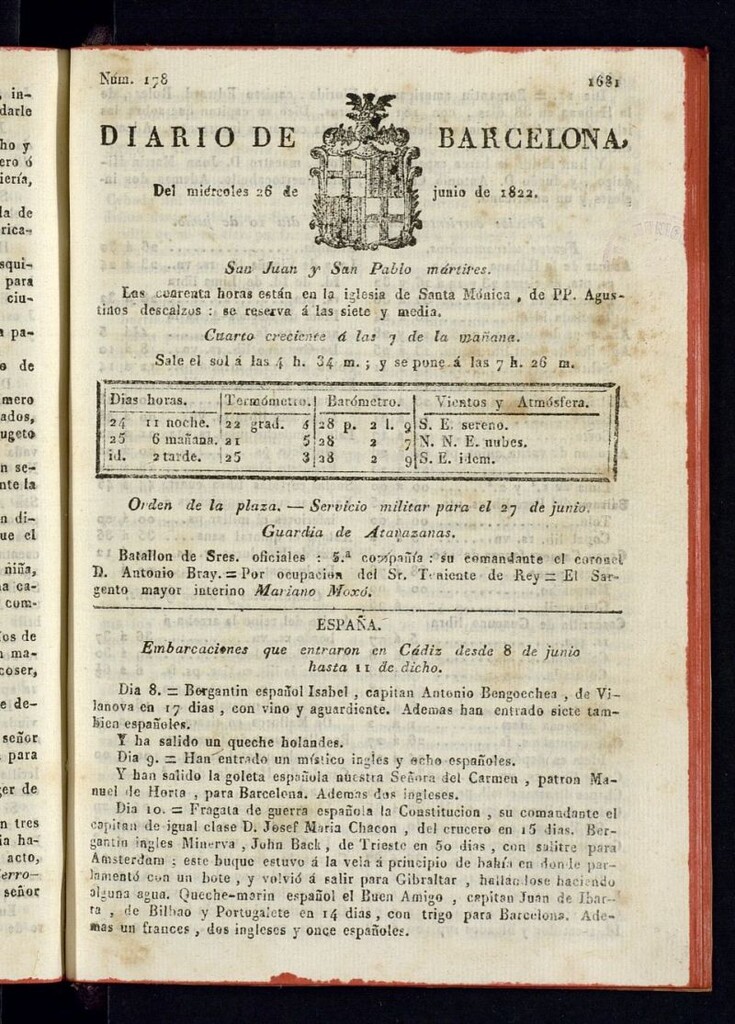 in-
darle
ho y
ero ó
iería,
la de
rica-
squi-
para
ciu-
a pa-
o de
mero
ados,
ugeto
n se-
nte la
n di-
ue el
niña,
a ca-
com-
os de
n ma-
coser,
e de-
señor
para
ger de
n tres
ia ha-
acto,
erro-
señor
Núm. 178 1681
DIARIO DE BARCELONA,
Del miércoles 26 de junio de 1822.
San Juan y San Pablo mártires.
Las cuarenta horas están en la iglesia de Santa Mónica, de PP. Agus-
tinos descalzos : se reserva á las siete y media.
Cuarto creciente á las 7 de la mañana.
Sale el sol á las 4 h. 34 m. ; y se pone á las 7 h. 26 m.
Dias horas. Termómetro. Barómetro. Vientos y Atmósfera.
24 11 noche. 22 grad. 28 p. 2 l. 9 S. E. sereno.
25 6 mañana. 21 5 28 2 7 N. N. E. nubes.
id. 2 tarde. 25 3 28 2 9 S. E. idem.
Orden de la plaza. — Servicio militar para el 27 de junio.
Guardia de Atarazanas.
Batallon de Sres. oficiales : 5.ª compañía : su comandante el coronel
D. Antonio Bray. = Por ocupacion del Sr. Teniente de Rey = El Sar-
gento mayor interino Mariano Moxó.
ESPAÑA.
Embarcaciones que entraron en Cádiz desde 8 de junio
hasta 11 de dicho.
Dia 8. = Bergantin español Isabel, capitan Antonio Bengoechea, de Vi-
lanova en 17 dias, con vino y aguardiente. Ademas han entrado siete tam-
bien españoles.
Y ha salido un queche holandes.
Dia 9. = Han entrado un místico ingles y ocho españoles.
Y han salido la goleta española nuestra Señora del Carmen, patron Ma-
nuel de Horta, para Barcelona. Ademas dos ingleses.
Dia 10. = Fragata de guerra española la Constitucion, su comandante el
capitan de igual clase D. Josef Maria Chacon, del crucero en 15 dias. Ber-
gantin ingles Minerva, John Back, de Trieste en 50 dias, con salitre para
Amsterdam ; este buque estuvo á la vela á principio de bahía en donde par-
lamentó con un bote, y volvió á salir para Gibraltar, hallandose haciendo
alguna agua. Queche-marin español el Buen Amigo, capitan Juan de Ibar-
ra, de Bilbao y Portugalete en 14 dias, con trigo para Barcelona. Ade-
mas un frances, dos ingleses y once españoles.